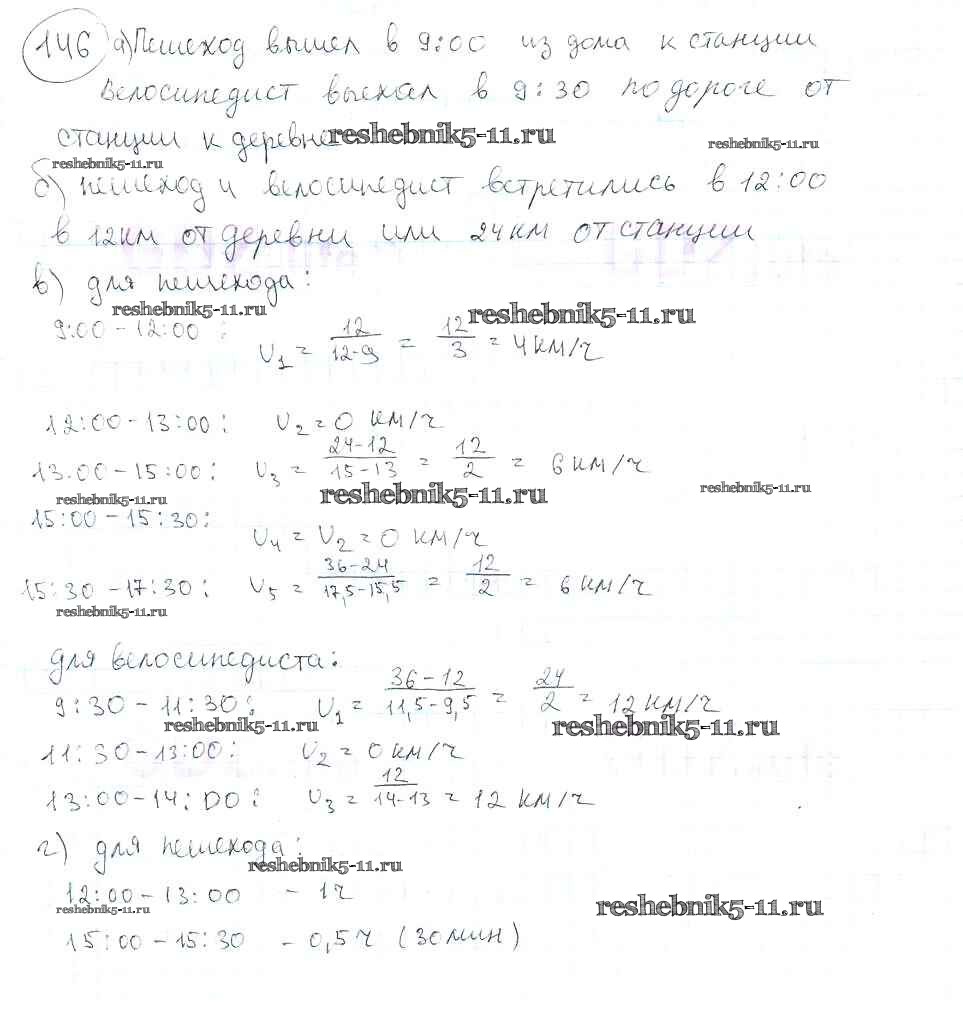 146 а) Пешеход вышел в 9:00 из дома к станции
Велосипедист выехал в 9:30 по дороге от
станции к деревне reshebnik5-11.ru reshebnik5-11.ru
reshebnik5-11.ru
б) пешеход и велосипедист встретились в 12:00
в 12км от деревни или 24км от станции
в) для пешехода:
reshebnik5-11.ru reshebnik5-11.ru
9:00 - 12:00 : U₁ = 12/12-9 = 12/3 = 4км/ч
12:00 - 13:00 : U₂ = 0 км/ч
13.00 - 15:00 : U₃ = 24-12/15-13 = 12/2 = 6 км/ч
reshebnik5-11.ru reshebnik5-11.ru reshebnik5-11.ru
15:00 - 15:30 : U₄ = U₂ = 0 км/ч
15:30 - 17:30 : U₅ = 36-24/17,5-15,5 = 12/2 = 6 км/ч
reshebnik5-11.ru
для велосипедиста:
9:30 - 11:30 : U₁ = 36-12/11,5-9,5 = 24/2 = 12км/ч
reshebnik5-11.ru reshebnik5-11.ru
11:30 - 13:00 : U₂ = 0 км/ч
13:00 - 14:00 : U₃ = 12/14-13 = 12 км/ч
г) для пешехода:
reshebnik5-11.ru
12:00 - 13:00 - 1ч
reshebnik5-11.ru reshebnik5-11.ru
15:00 - 15:30 - 0,5ч (30мин)